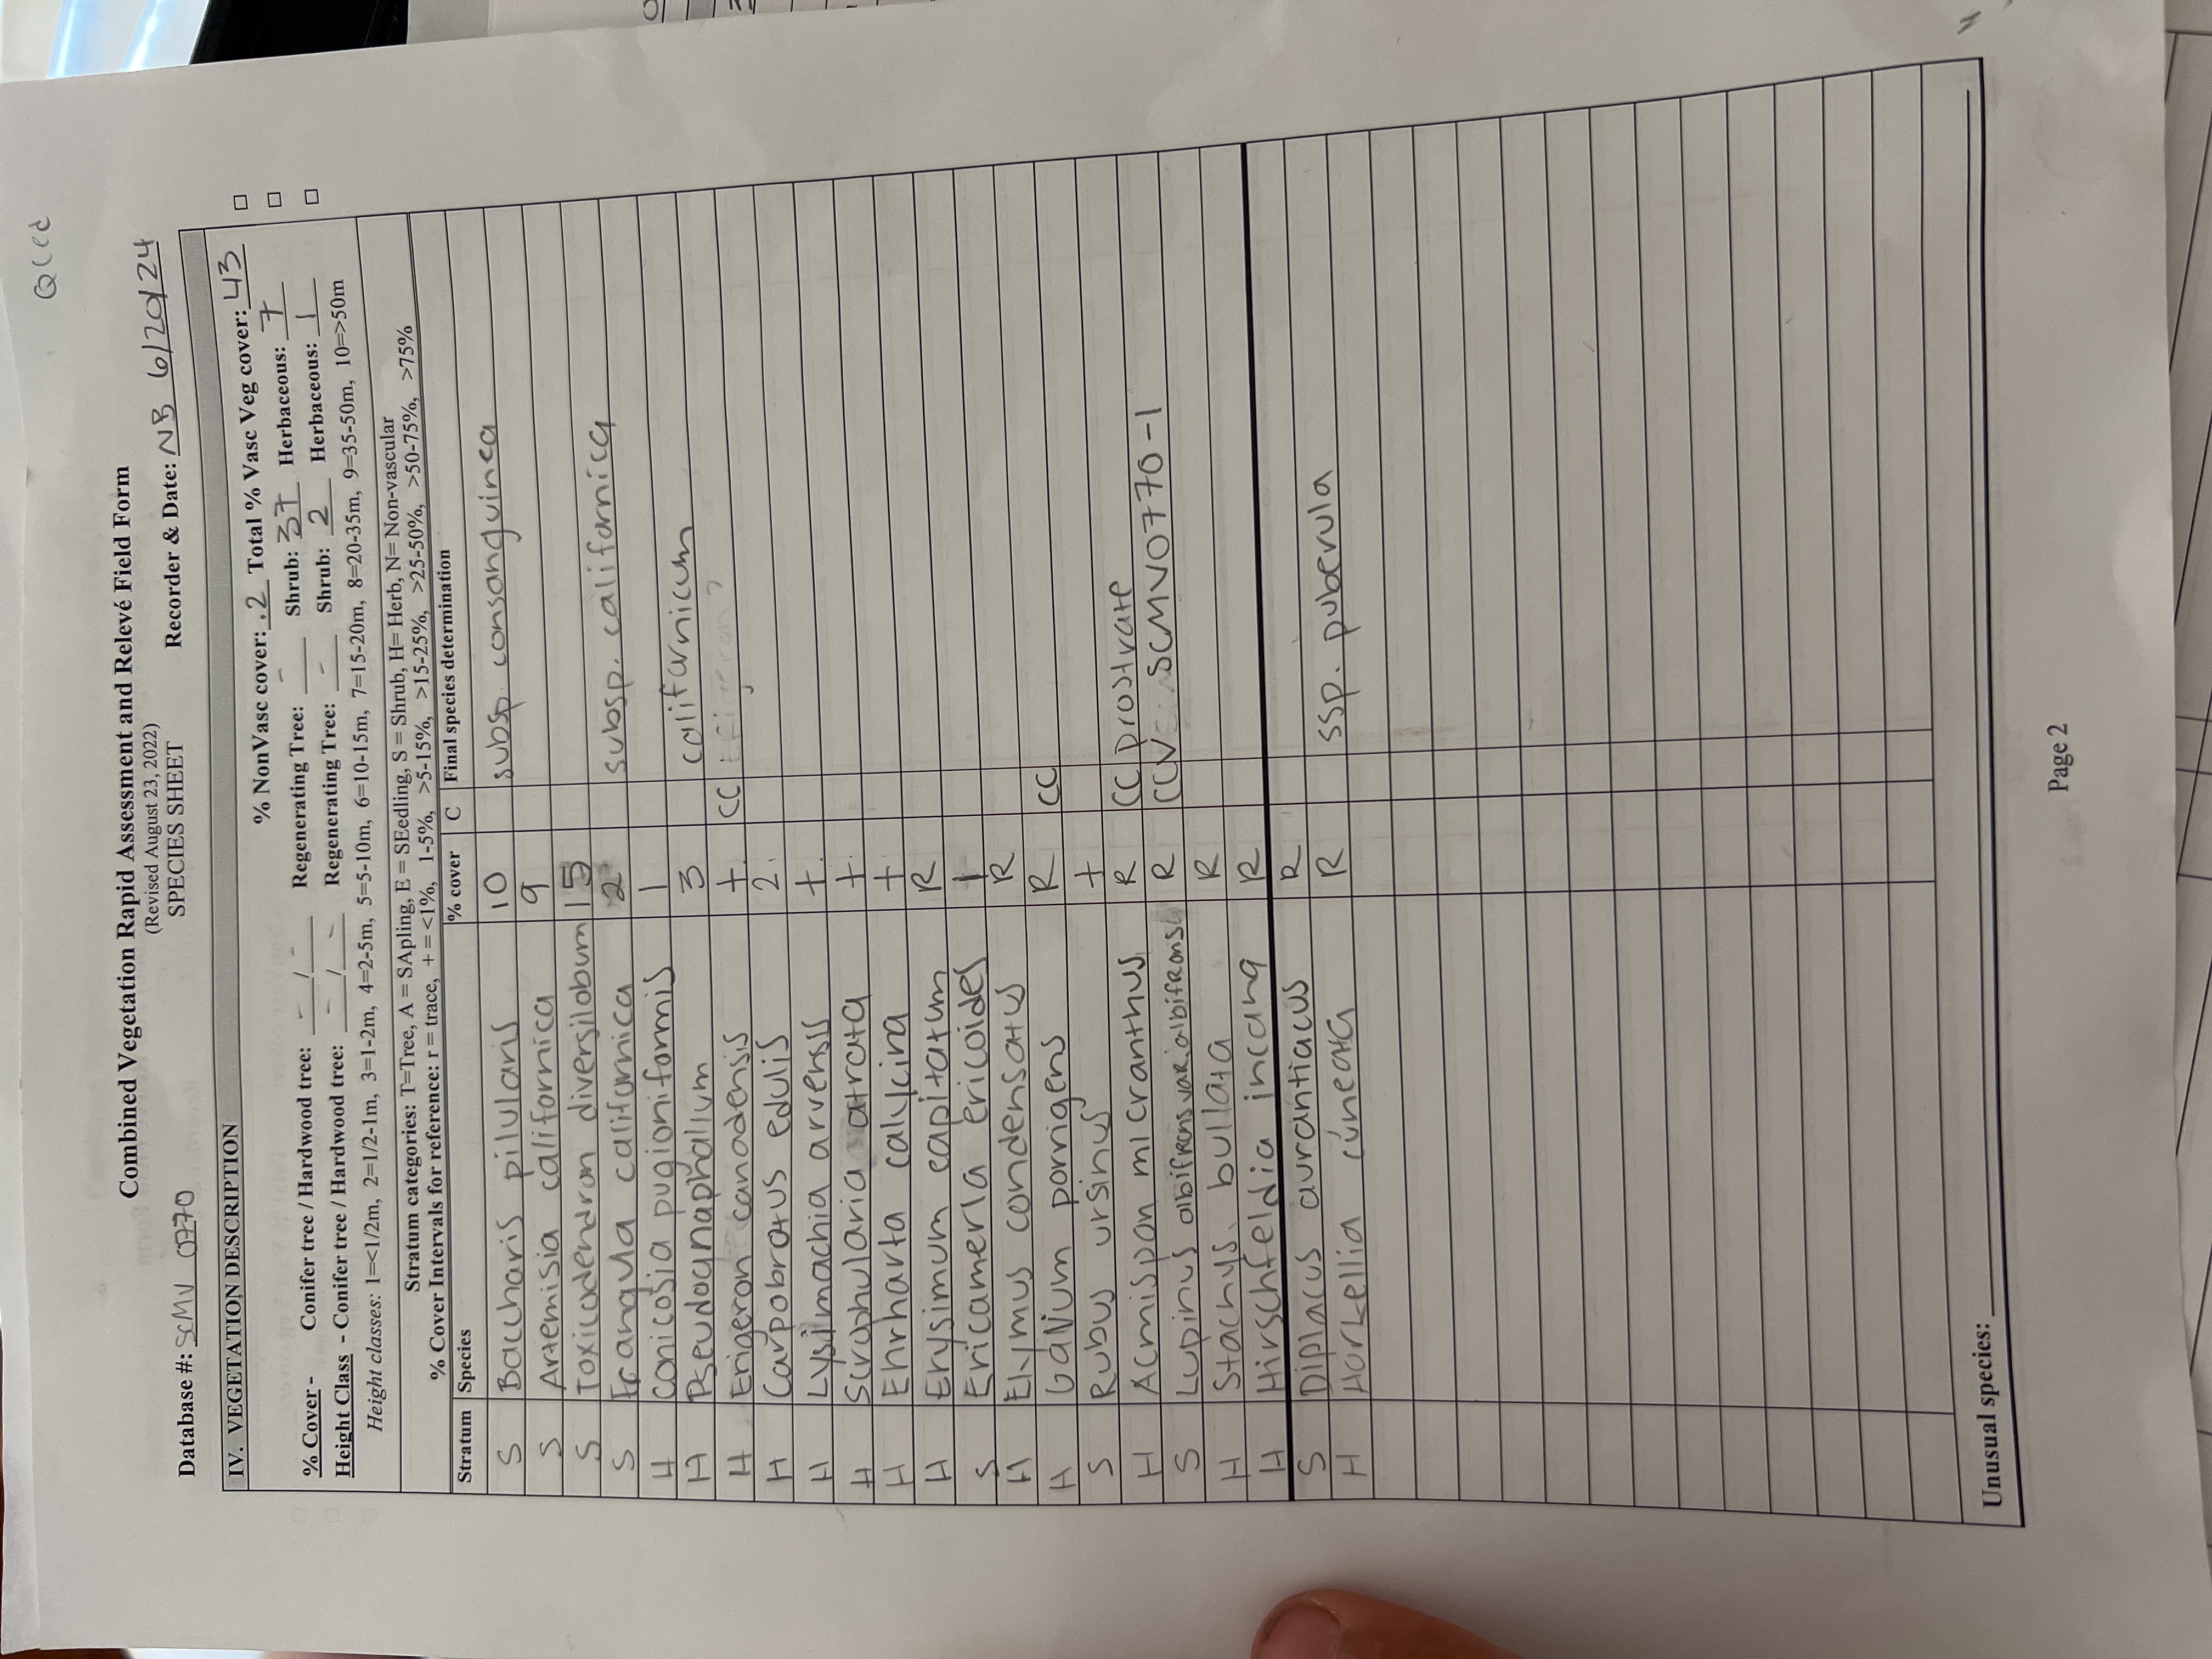 QCed
Combined Vegetation Rapid Assessment and Relevé Field Form
(Revised August 23, 2022)
SPECIES SHEET
Database #: SCMV 0770 Recorder & Date: NB 6/20/24
IV. VEGETATION DESCRIPTION
% NonVasc cover: .2 Total % Vasc Veg cover: 43
% Cover - Conifer tree / Hardwood tree: - / - Regenerating Tree: - Shrub: 37 Herbaceous: 7
Height Class - Conifer tree / Hardwood tree: - / - Regenerating Tree: - Shrub: 2 Herbaceous: 1
Height classes: 1=<1/2m, 2=1/2-1m, 3=1-2m, 4=2-5m, 5=5-10m, 6=10-15m, 7=15-20m, 8=20-35m, 9=35-50m, 10=>50m
Stratum categories: T=Tree, A = SApling, E = SEedling, S = Shrub, H= Herb, N= Non-vascular
% Cover Intervals for reference: r = trace, + = <1%, 1-5%, >5-15%, >15-25%, >25-50%, >50-75%, >75%
Stratum Species % cover C Final species determination
S Baccharis pilularis 10 subsp. consanguinea
S Artemisia californica 9
S Toxicodendron diversilobum 15
S Frangula californica 2 subsp. californica
H Conicosia pugioniformis 1
H Pseudognaphalium 3 californicum
H Erigeron canadensis + CC
H Carpobrotus edulis 2.
H Lysimachia arvensis +
H Scrophularia atrata +
H Ehrharta calycina +
H Erysimum capitatum R
S Ericameria ericoides 1
H Elymus condensatus R
H Galium porrigens R CC
S Rubus ursinus +
H Acmispon micranthus R CC prostrate
S Lupinus albifrons var. albifrons R CCV SCMV0770-1
H Stachys bullata R
H Hirschfeldia incana R
S Diplacus aurantiacus R
H Horkellia cuneata R ssp. puberula
Unusual species:
Page 2